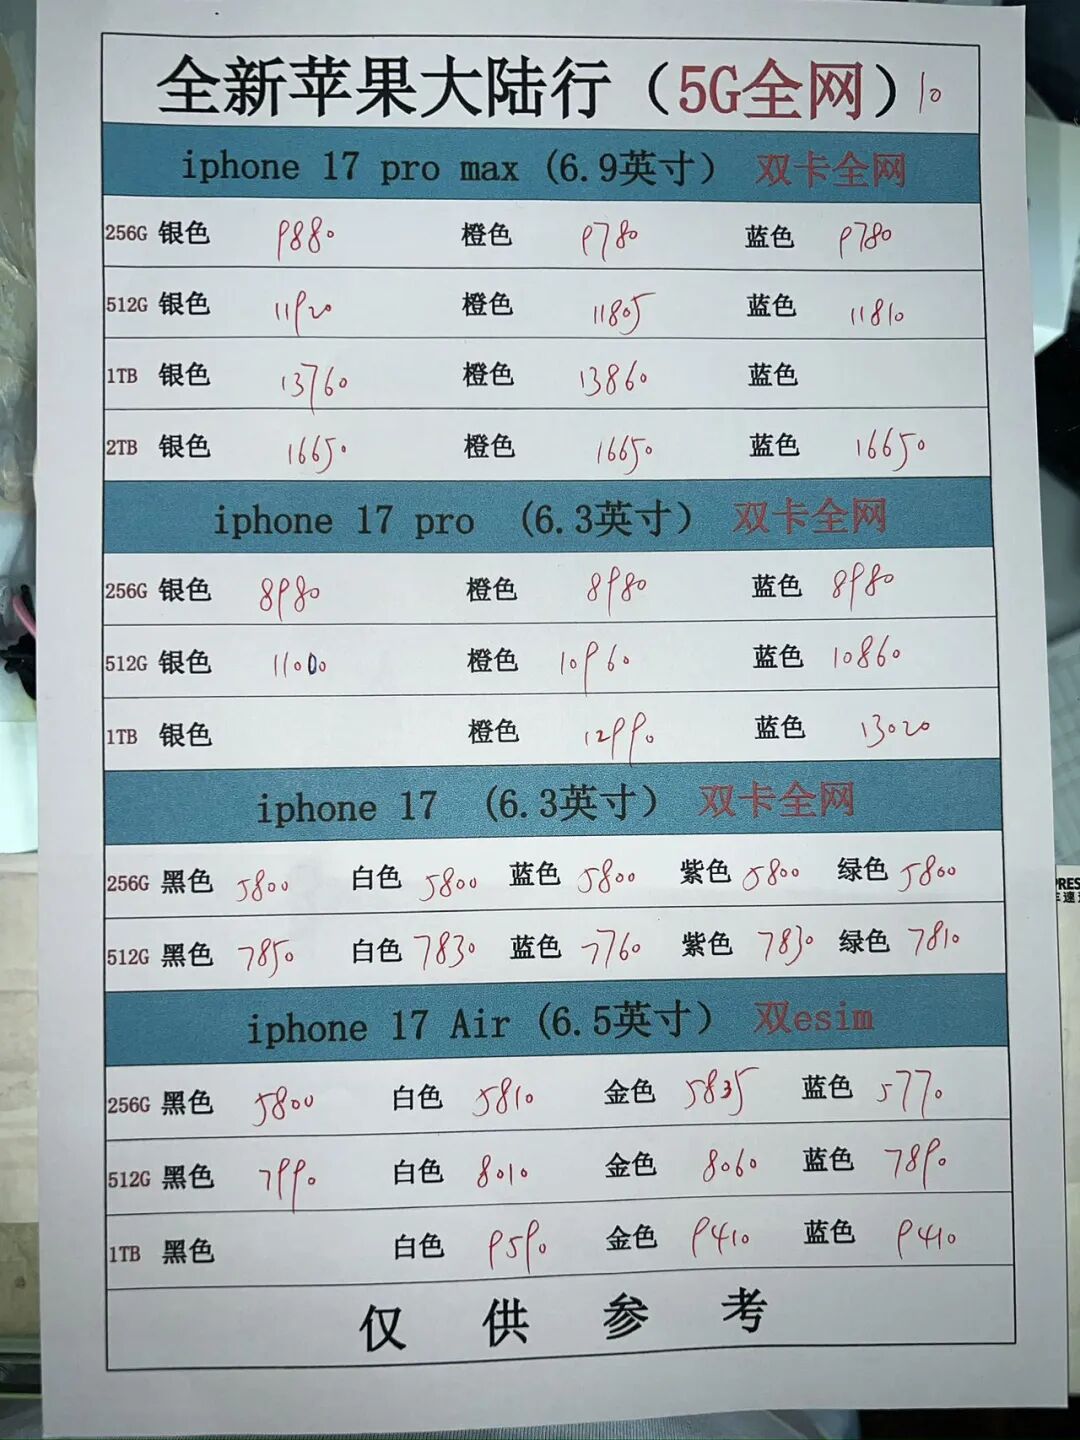 全新苹果大陆行（5G全网）10
iphone 17 pro max (6.9英寸） 双卡全网
256G 银色 9880 橙色 9780 蓝色 9780
512G 银色 11920 橙色 11805 蓝色 11810
1TB 银色 13760 橙色 13860 蓝色
2TB 银色 16650 橙色 16650 蓝色 16650
iphone 17 pro （6.3英寸） 双卡全网
256G 银色 8980 橙色 8980 蓝色 8980
512G 银色 11000 橙色 10960 蓝色 10860
1TB 银色 橙色 12990 蓝色 13020
iphone 17 （6.3英寸） 双卡全网
256G 黑色 5800 白色 5800 蓝色 5800 紫色 5800 绿色 5800
512G 黑色 7850 白色 7830 蓝色 7760 紫色 7830 绿色 7810
iphone 17 Air (6.5英寸） 双esim
256G 黑色 5800 白色 5810 金色 5835 蓝色 5770
512G 黑色 7990 白色 8010 金色 8060 蓝色 7890
1TB 黑色 白色 9590 金色 9410 蓝色 9410
仅供参考